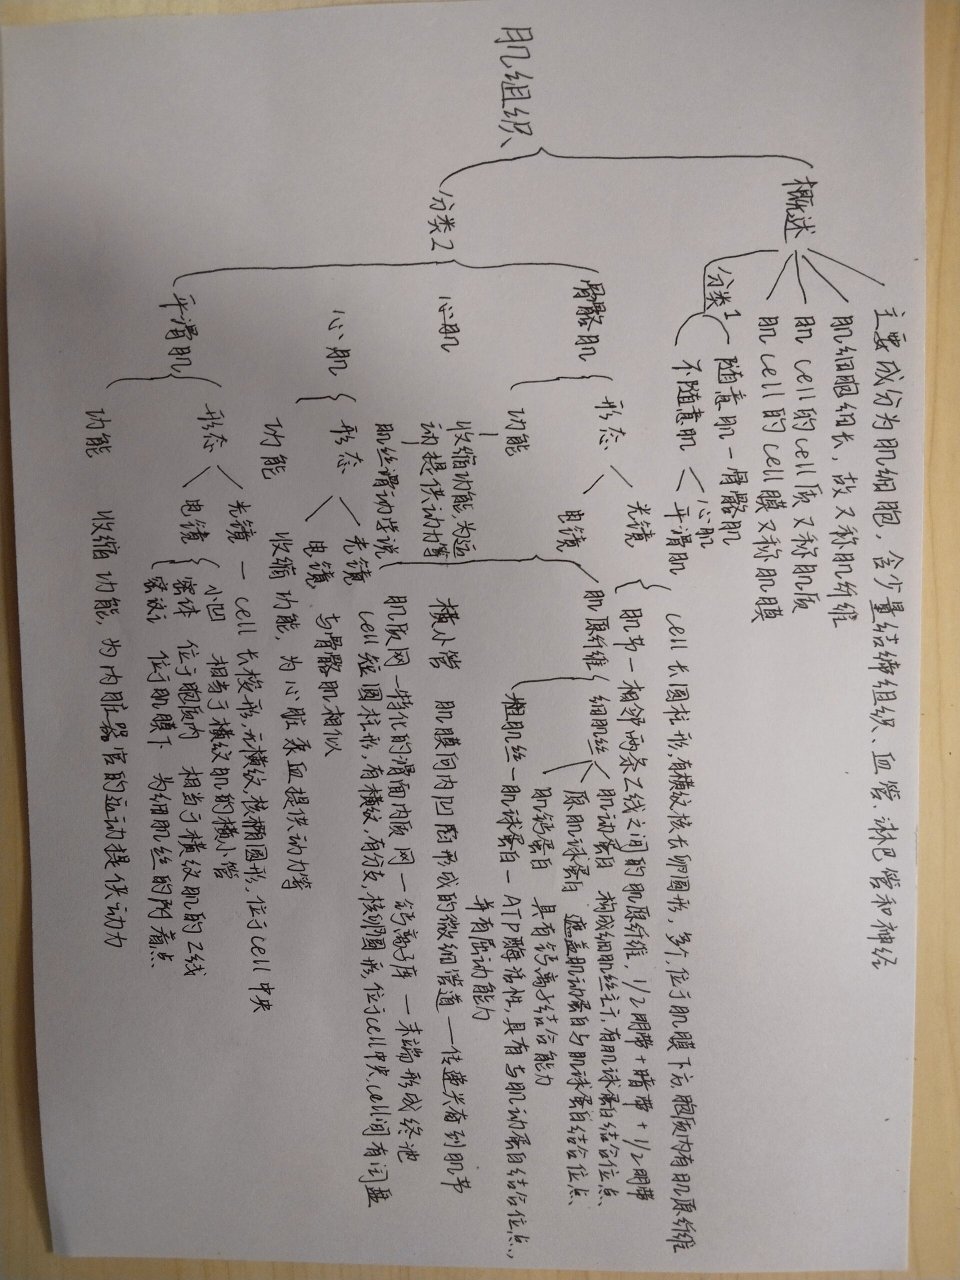 肌组织
概述
主要成分为肌细胞，含少量结缔组织、血管、淋巴管和神经
肌细胞细长，故又称肌纤维
肌cell的cell质又称肌质
肌cell的cell膜又称肌膜
分类1
随意肌一骨骼肌
不随意肌
心肌
平滑肌
分类2
骨骼肌
形态
光镜
cell长圆柱形，有横纹核长卵圆形，多个，位于肌膜下方，胞质内有肌原纤维
肌节一相邻两条Z线之间的肌原纤维，1/2明带+暗带+1/2明带
电镜
肌原纤维
细肌丝
肌动蛋白 构成细肌丝主干，有肌球蛋白结合位点
原肌球蛋白 遮盖肌动蛋白与肌球蛋白结合位点
肌钙蛋白 具有钙离子结合能力
粗肌丝一肌球蛋白一ATP酶活性，具有与肌动蛋白结合位点，
并有屈动能力
横小管 肌膜向内凹陷形成的微细管道一传递兴奋到肌节
肌质网一特化的滑面内质网一钙离子库一末端形成终池
功能
收缩功能为运
动提供动力等
肌丝滑动学说
心肌
心肌
形态
光镜
cell短圆柱形，有横纹，有分支，核卵圆形，位于cell中央，cell间有闰盘
电镜
与骨骼肌相似
功能
收缩功能，为心脏泵血提供动力等
平滑肌
形态
光镜一cell长梭形，无横纹，核椭圆形，位于cell中央
电镜
小凹 相当于横纹肌的横小管
密体 位于胞质内 相当于横纹肌的Z线
密斑 位于肌膜下 为细肌丝的附着点
功能
收缩功能，为内脏器官的运动提供动力